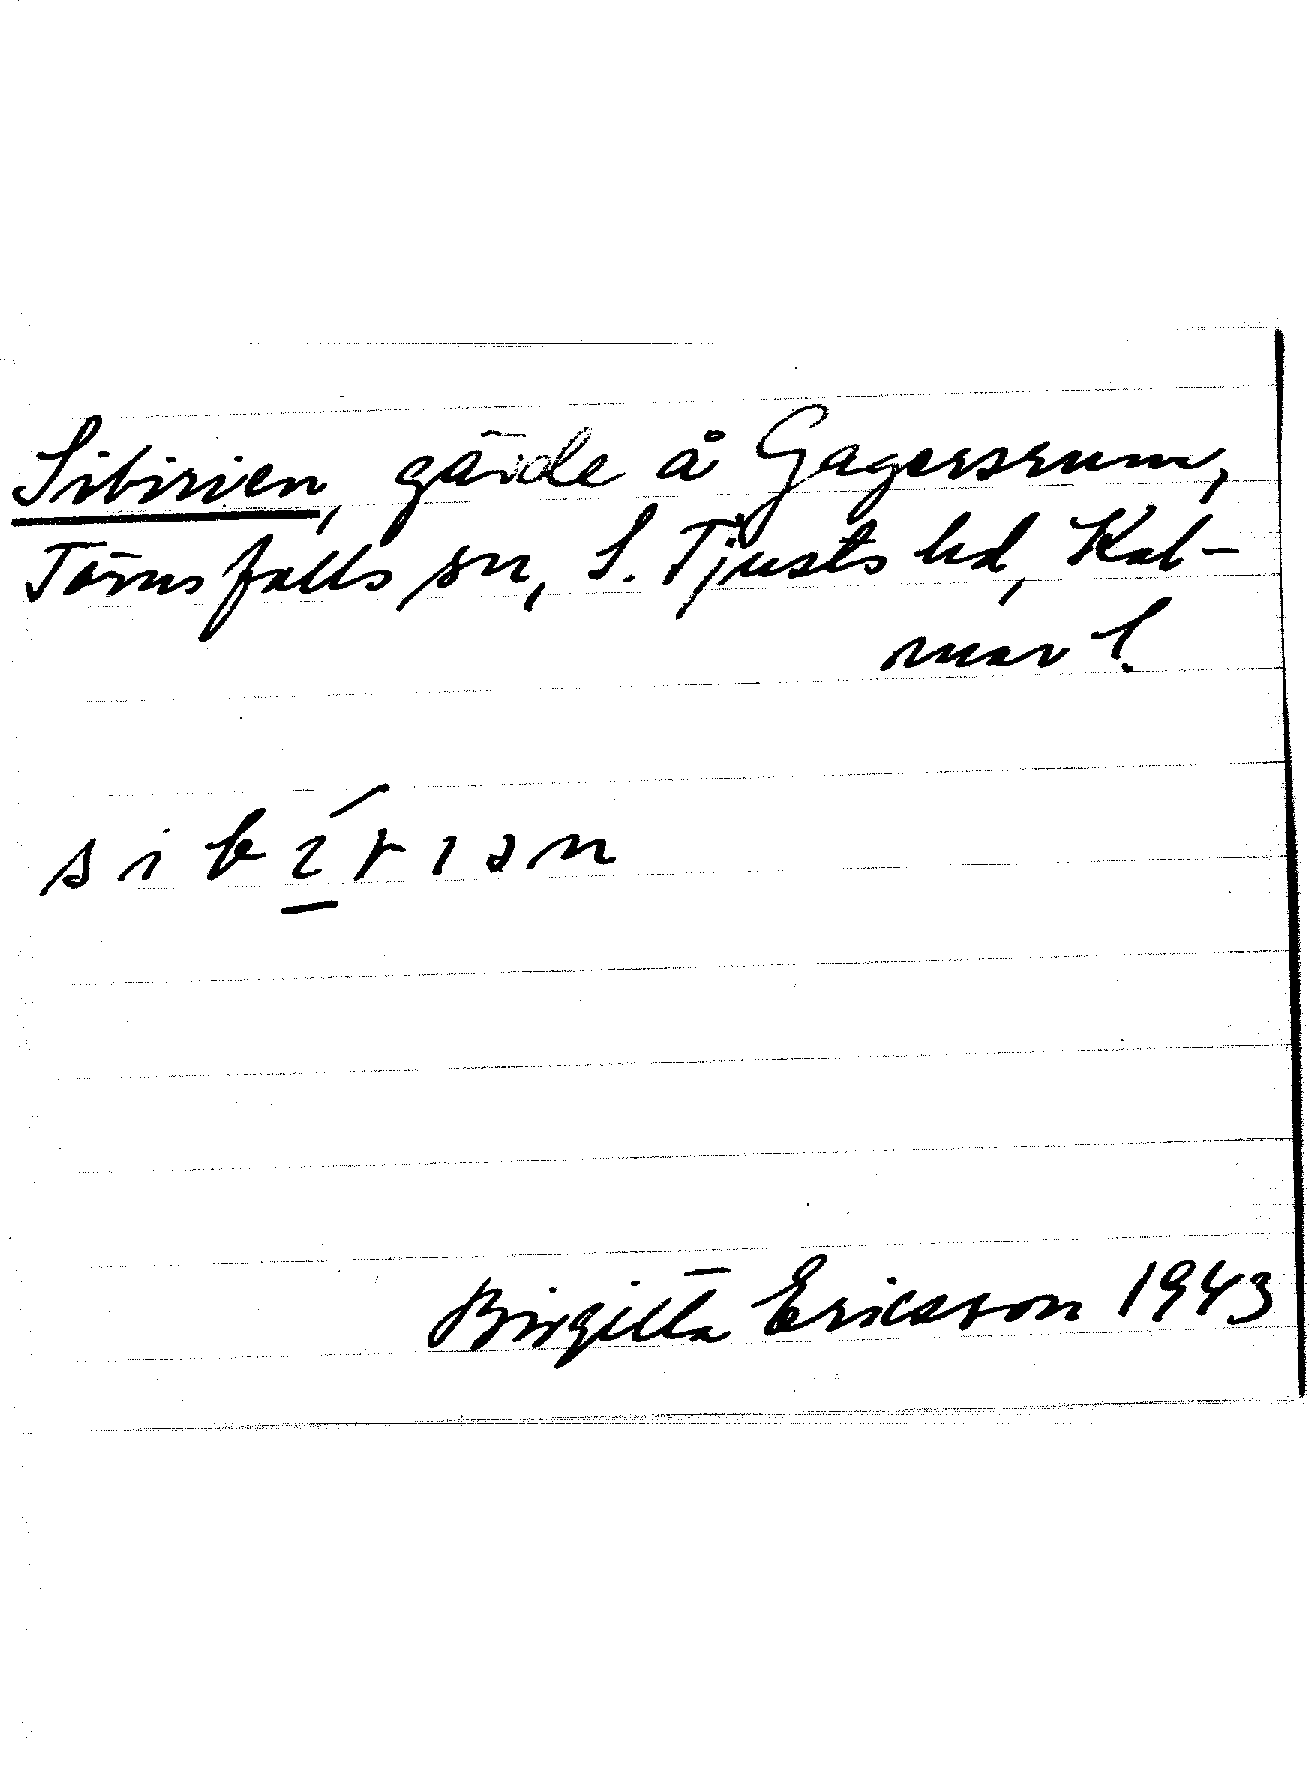 Sibirien, gärde å Gagersrum,
Törnsfalls sn, S. Tjusts hd, Kal-
mar l.
sibírıən
Birgitta Ericsson 1943